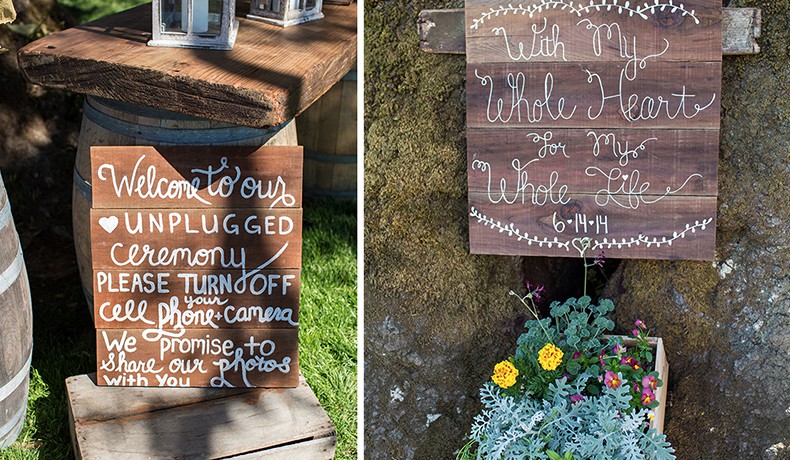 Welcome to our
UNPLUGGED
Ceremony
PLEASE TURN OFF
your
cell phone + camera
We promise to
share our photos
with you
With My
Whole Heart
For My
Whole Life
6•14•14